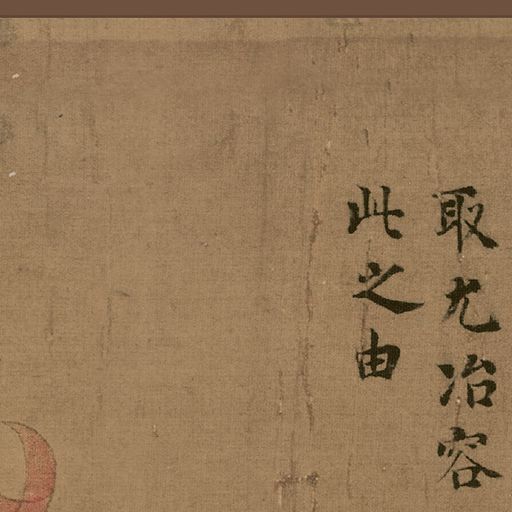 取尤冶容
此之由